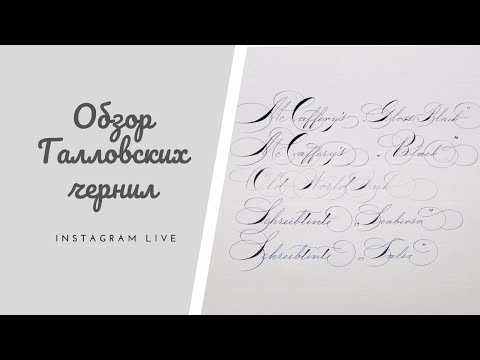 Обзор
Галловских
чернил
INSTAGRAM LIVE
Mc Caffery's „Gloss Black“
Mc Caffery's „Black“
Old World Ink
Schreibtinte „Scabiosa“
Schreibtinte „Salix“